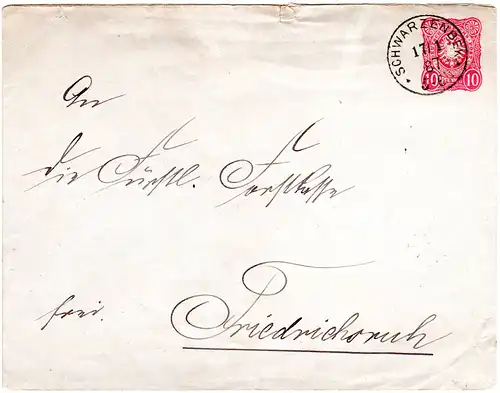 SCHWARZENBEK
17/1
87
10 10
An
die Fürstl. Forstkasse
frei.
Friedrichsruh